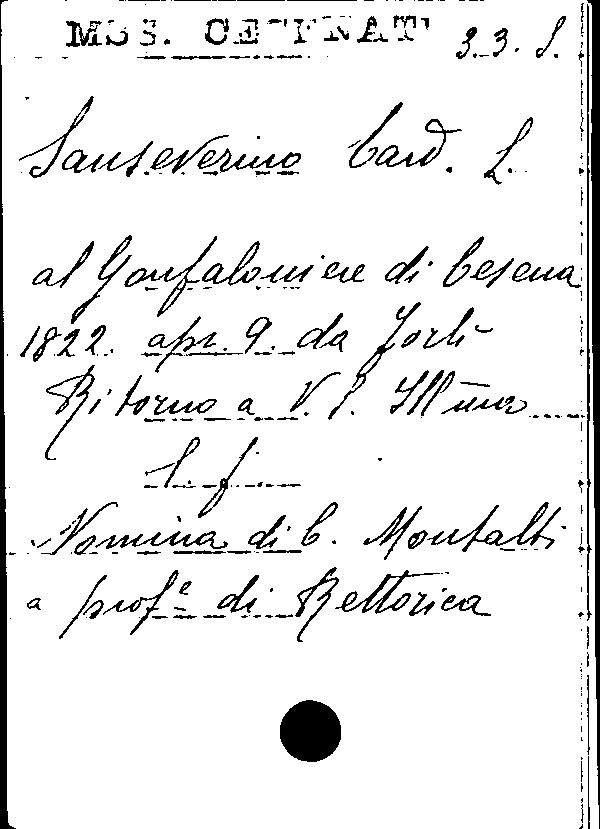 MSS. CESENATI 3. 3. S.
Sanseverino Card. L.
al Gonfaloniere di Cesena
1822. apr. 9. da Forlì
Ritorno a V. S. Ill͞ma
l. f.
Nomina di C. Montalti
a prof.e di Rettorica